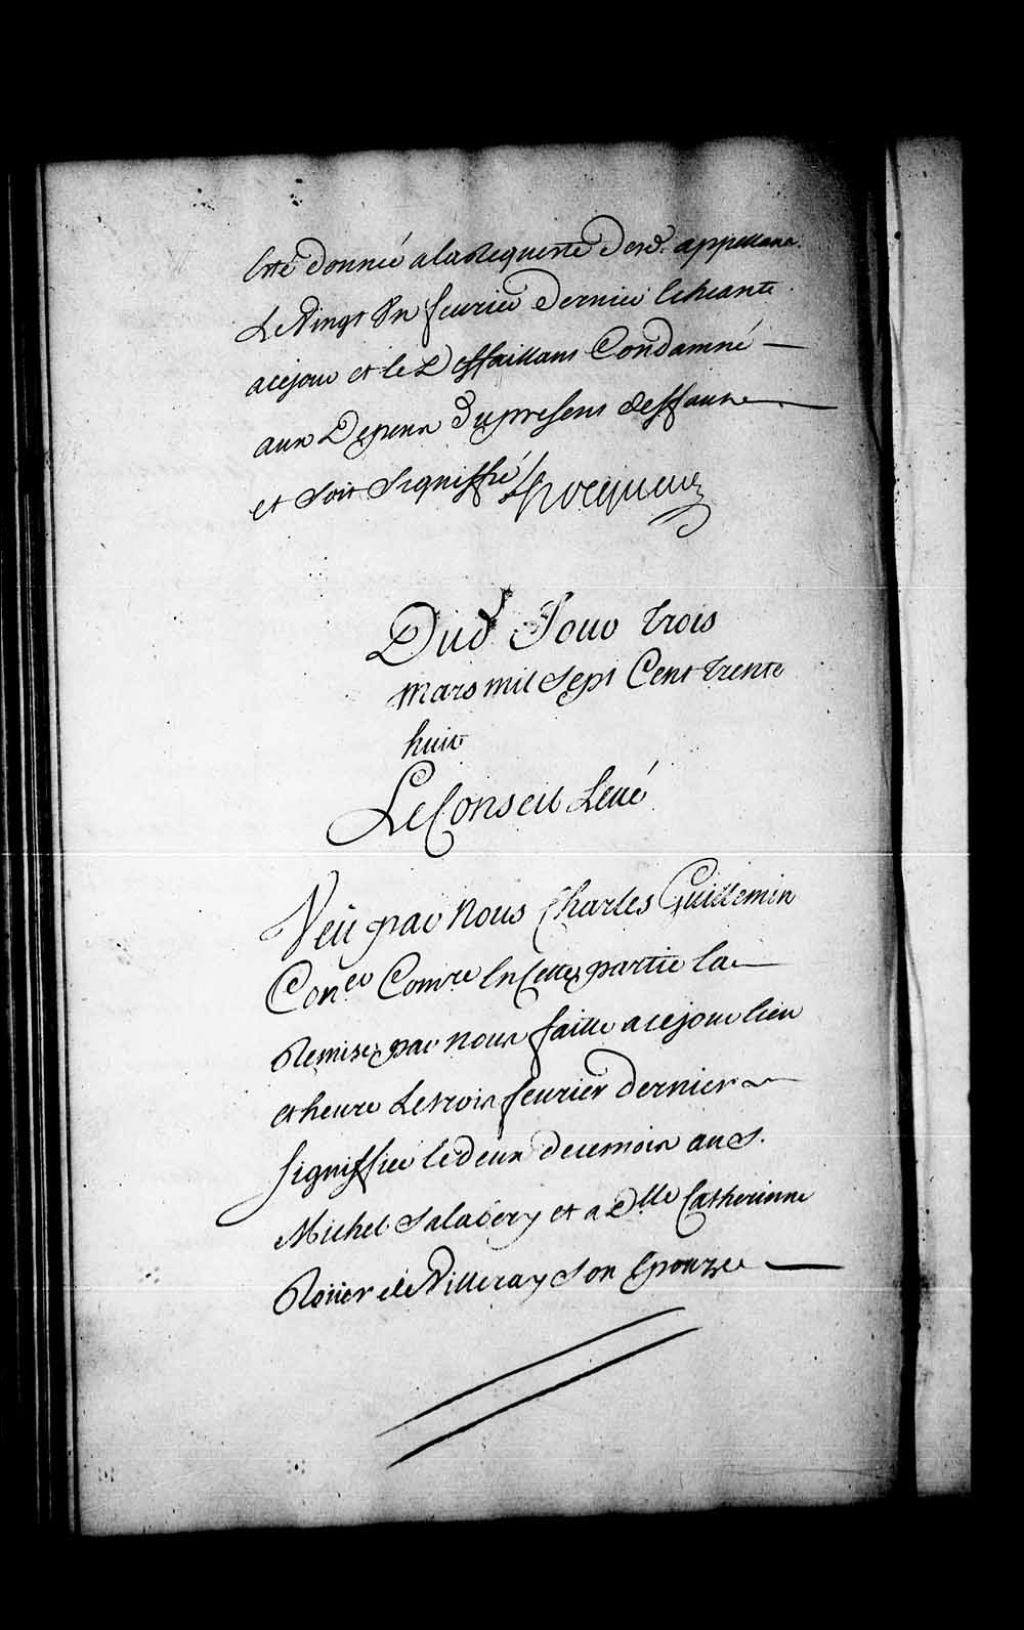 Esté donnée a la Requeste Desd. appellans
Le Vingt Un feurier Dernier Echeante
a cejour et le Deffaillant Condamné
aux Depens Du present deffaut
et Soit Signiffié Hocquart
Dud Jour trois
mars mil Sept Cent trente
huit
Le Conseil Leué
Veü par Nous Charles Guillemin
Coner Comre En Cette partie la
Remise par nous faitte a cejour lieu
et heure Le trois feurier dernier
signiffiée le deux du mois au S.
Michel Salabery et a Dlle Catherinne
Roüer de Villeray Son Epouze